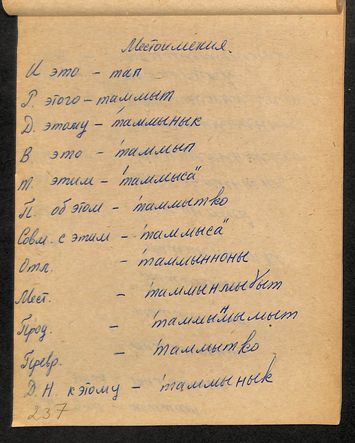 Местоимения.
И это – тап
Р. этого – таммыт
Д. этому – 'таммынык
В это – 'таммып
т. этим – 'таммыса"
П. об этом – 'таммытко
Совм. с этим – 'таммыса"
Отл. – 'таммынноны
Мест. –
Прод. –
Превр. – 'таммытко
Д. Н. к этому – 'таммынык
237